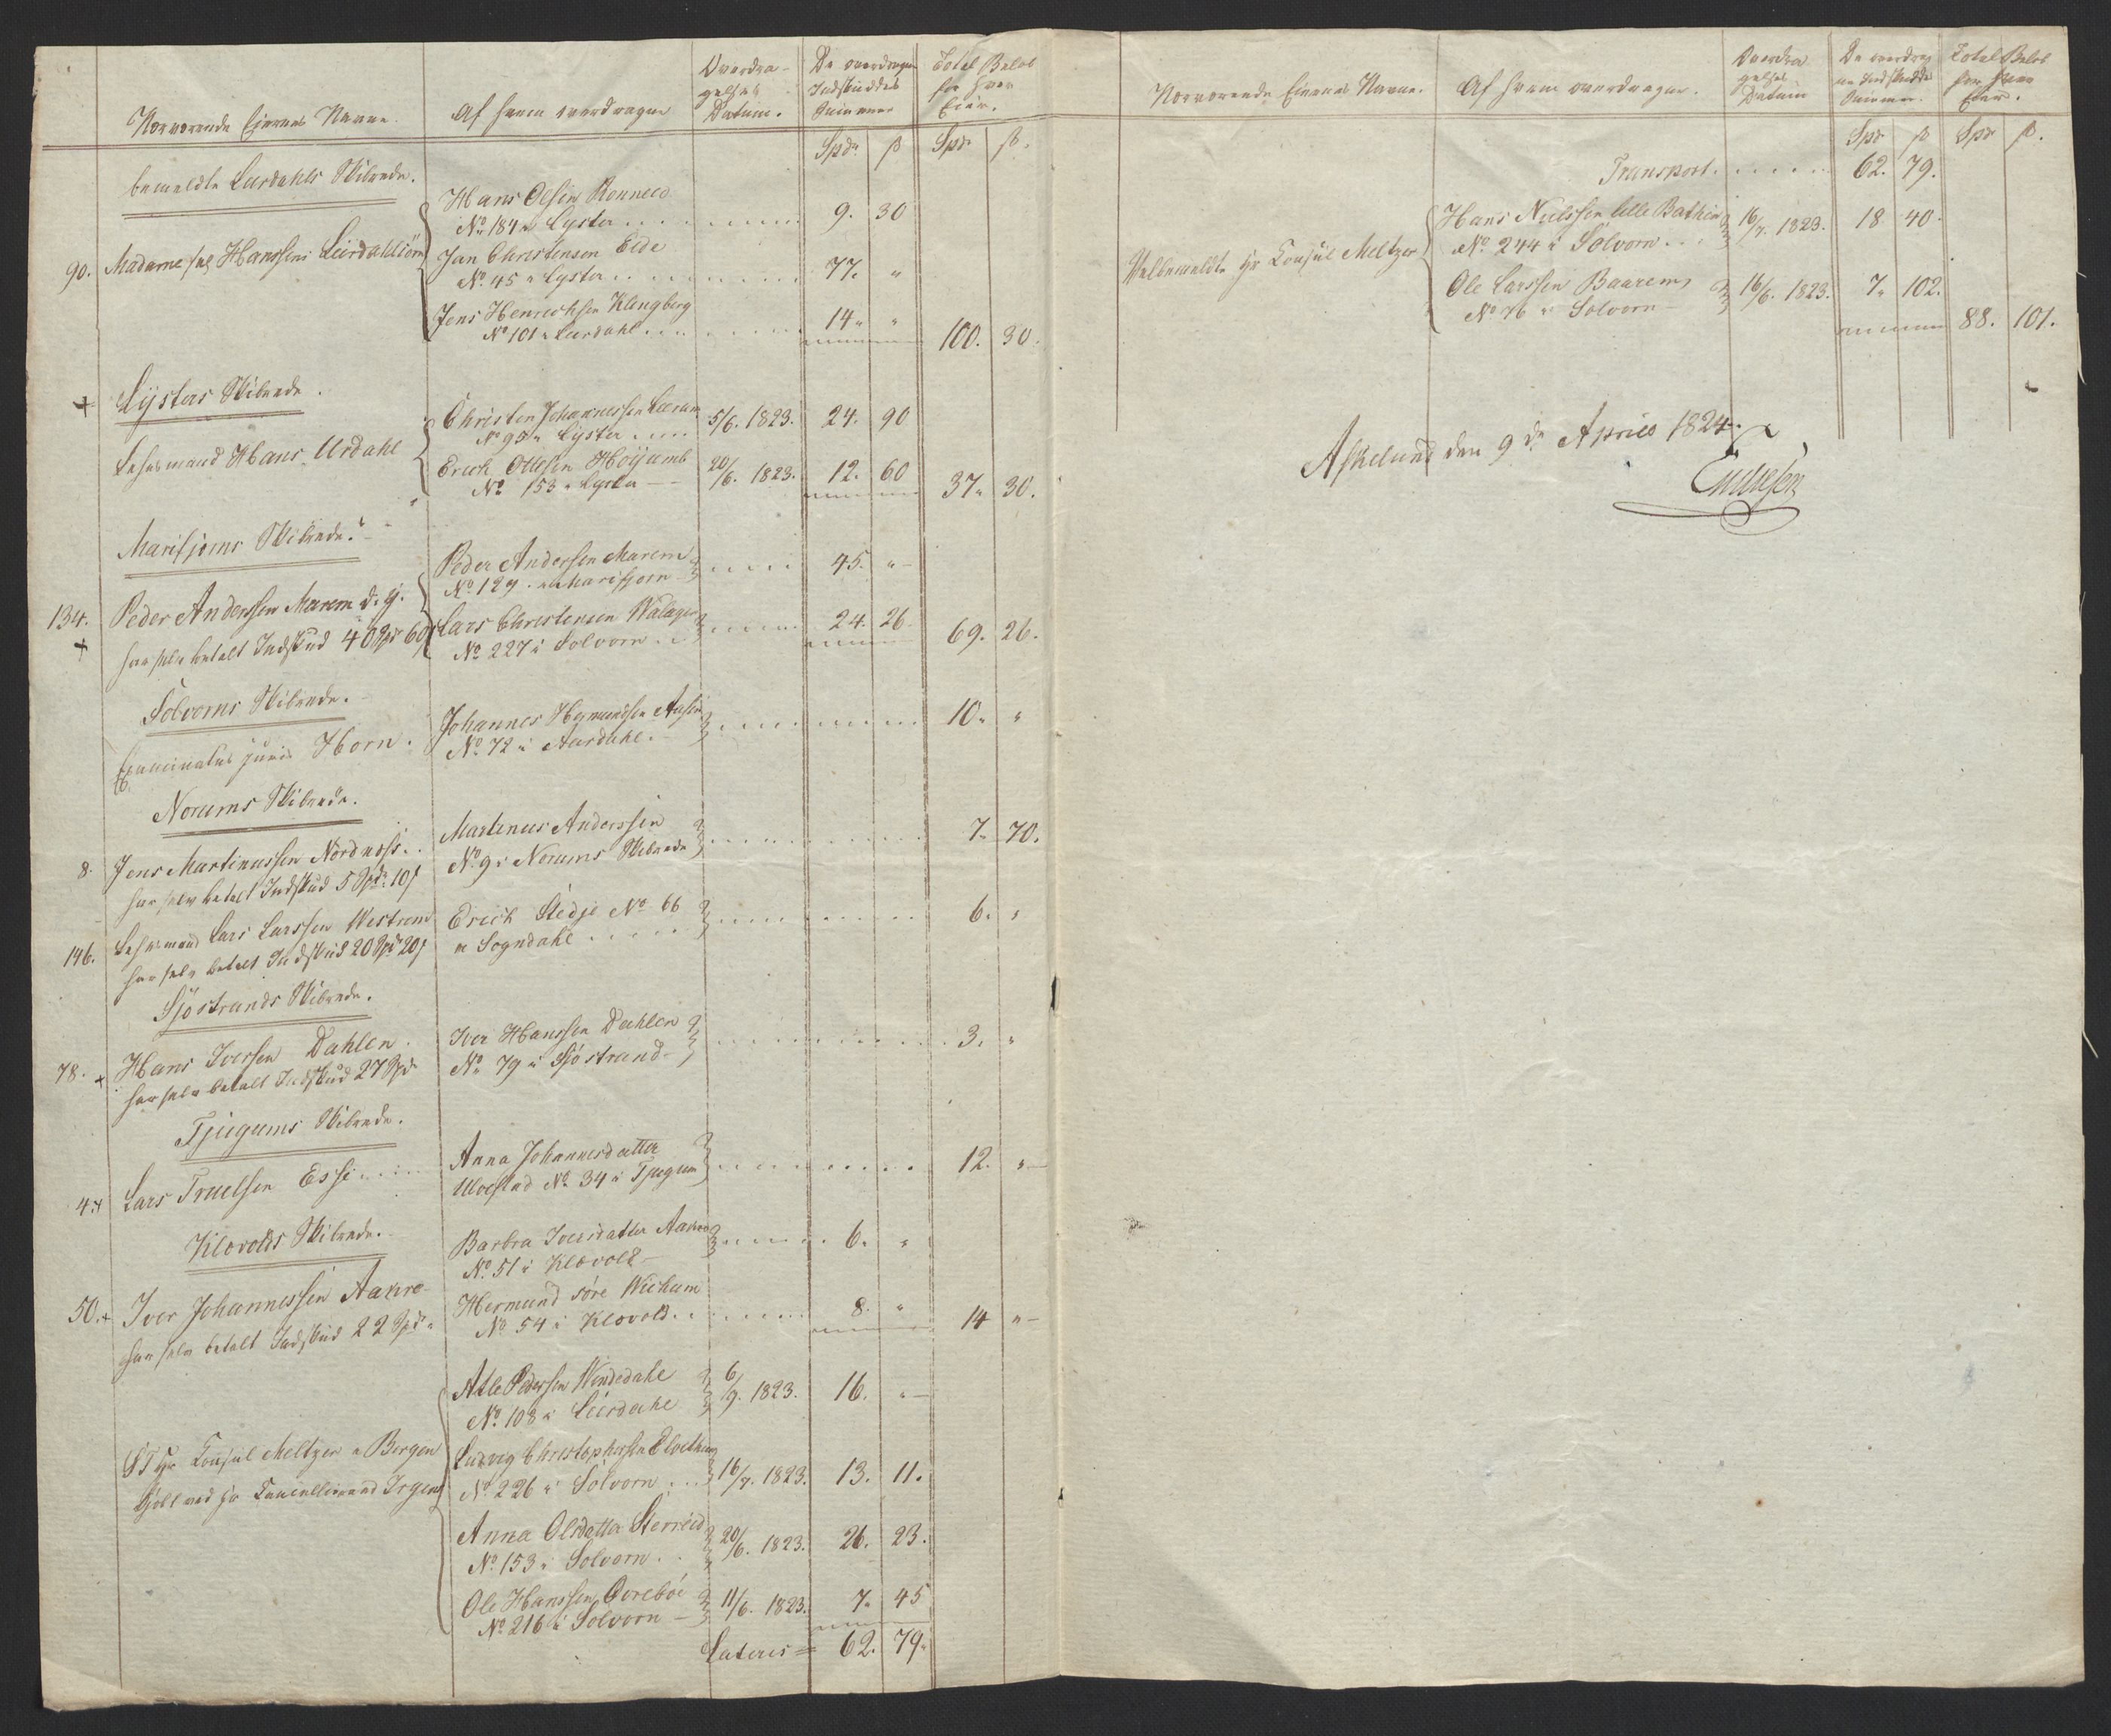 Nærværende Eiernes Navne.
Af hvem overdragen
Overdra-
gelses
Datum.
De overdragne
Indskuddes
Summer
Total Beløb
for hver
Eier.
Spdr ß Spdr ß.
bemeldte Leirdahls Skibrede.
90. Madame sal Hanssens Leirdahlsøren
Hans Olsen Ronneid
No 184 i Lyster . . . . 9. 30
Jan Christensen Eide
No 45 i Lyster . . . . 77. "
Jens Henrichsen Klingberg
No 101 i Leirdahl . . . . 14 " " 100. 30.
+ Lysters Skibrede.
Lehnsmand Hans Urdahl
Christen Johannessen Leerum
No 95 i Lyster . . . 5/6. 1823. 24. 90
Erich Ottesen Høyumb
No 153 i Lyster — 20/6. 1823. 12. 60 37 " 30.
Marifjerns Skibrede.
134. Peder Anderssen Marem d. y.
+ har selv betalt Indskud 40 Spdr 60 ß
Peder Andersen Marem
No 129 i Marifjern . . . . 45. "
Lars Christensen
No 227 i Solvorn . . . . 24. 26. 69. 26.
Solvorns Skibrede.
Examinatus juris Horn.
Johannes Hermundsen
No 72 i Aardahl. . . . . 10. "
Norums Skibrede.
8. Jens Martinussen Nordnæss . .
har selv betalt Indskud 5 Spdr 10 ß
Martinus Anderssen
No 9 i Norums Skibrede . . . . 7. 70.
146. Lehnsmand Lars Larssen Westrem
har selv betalt Indskud 20 Spd 20 ß
Erich Stedje No 66
i Sogndahl . . . . . 6. "
Sjøstrands Skibrede.
78. + Hans Iversen Dahlen.
har selv betalt Indskud 27 Spd
Iver Hanssen Dahlen
No 79 i Sjøstrand . . . . 3. "
Tjugums Skibrede.
4. + Lars Truelsen Esse . . . .
Anna Johannesdatter
Ulvestad No 34 i Tjugum . . . . 12. "
Klovolds Skibrede.
50. + Iver Johannessen Aakre
har selv betalt Indskud 22 Spdr
Barbra Iversdatter Aakre
No 51 i Klovold . . . . 6. "
Hermund søre Wichum
No 54 i Klovold . . . . 8. " 14 "
Hr Consul Meltzer i Bergen
Kjøbt ved Hr Cancelliraad Irgens
Atle Pedersen Wendedahl
No 108 i Leirdahl 6/9. 1823. 16. "
Ludvig Christophersen
No 226 i Solvorn . . . 16/7. 1823. 13. 11.
Anna Olsdatter
No 153 i Solvorn . . 20/6. 1823. 26. 23.
Ole Hanssen
No 216 i Solvorn — 11/6. 1823. 7. 45
Lateris = 62. 79.
Nærværende Eiernes Navne.
Af hvem overdragen.
Overdra
gelses
Datum
De overdrag
ne Indskudds
Summer.
Total Beløb
for hver
Eier.
Spdr ß Spdr ß.
Transport . . . . . 62. 79.
Velbemeldte Hr Consul Meltzer
Hans Nielssen lille
No 244 i Solvorn . . 16/7. 1823. 18 40.
Ole Larssen Baarem
No 76 i Solvorn — 16/6. 1823. 7. 102. 88. 101.
Askelund den 9de April 1824.